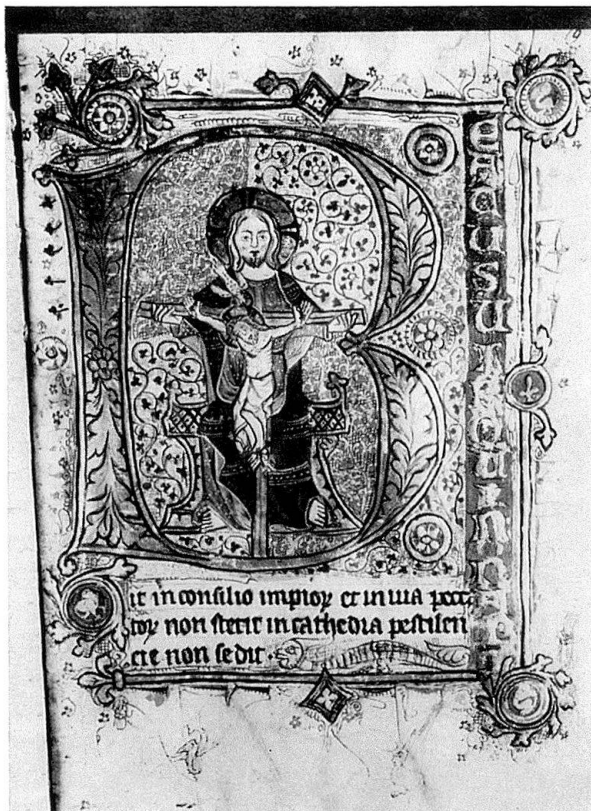 Beatus uir qui
it in consilio impioꝝ et in uia pecca
toꝝ non stetit in cathedra pestilen
cie non sedit ·